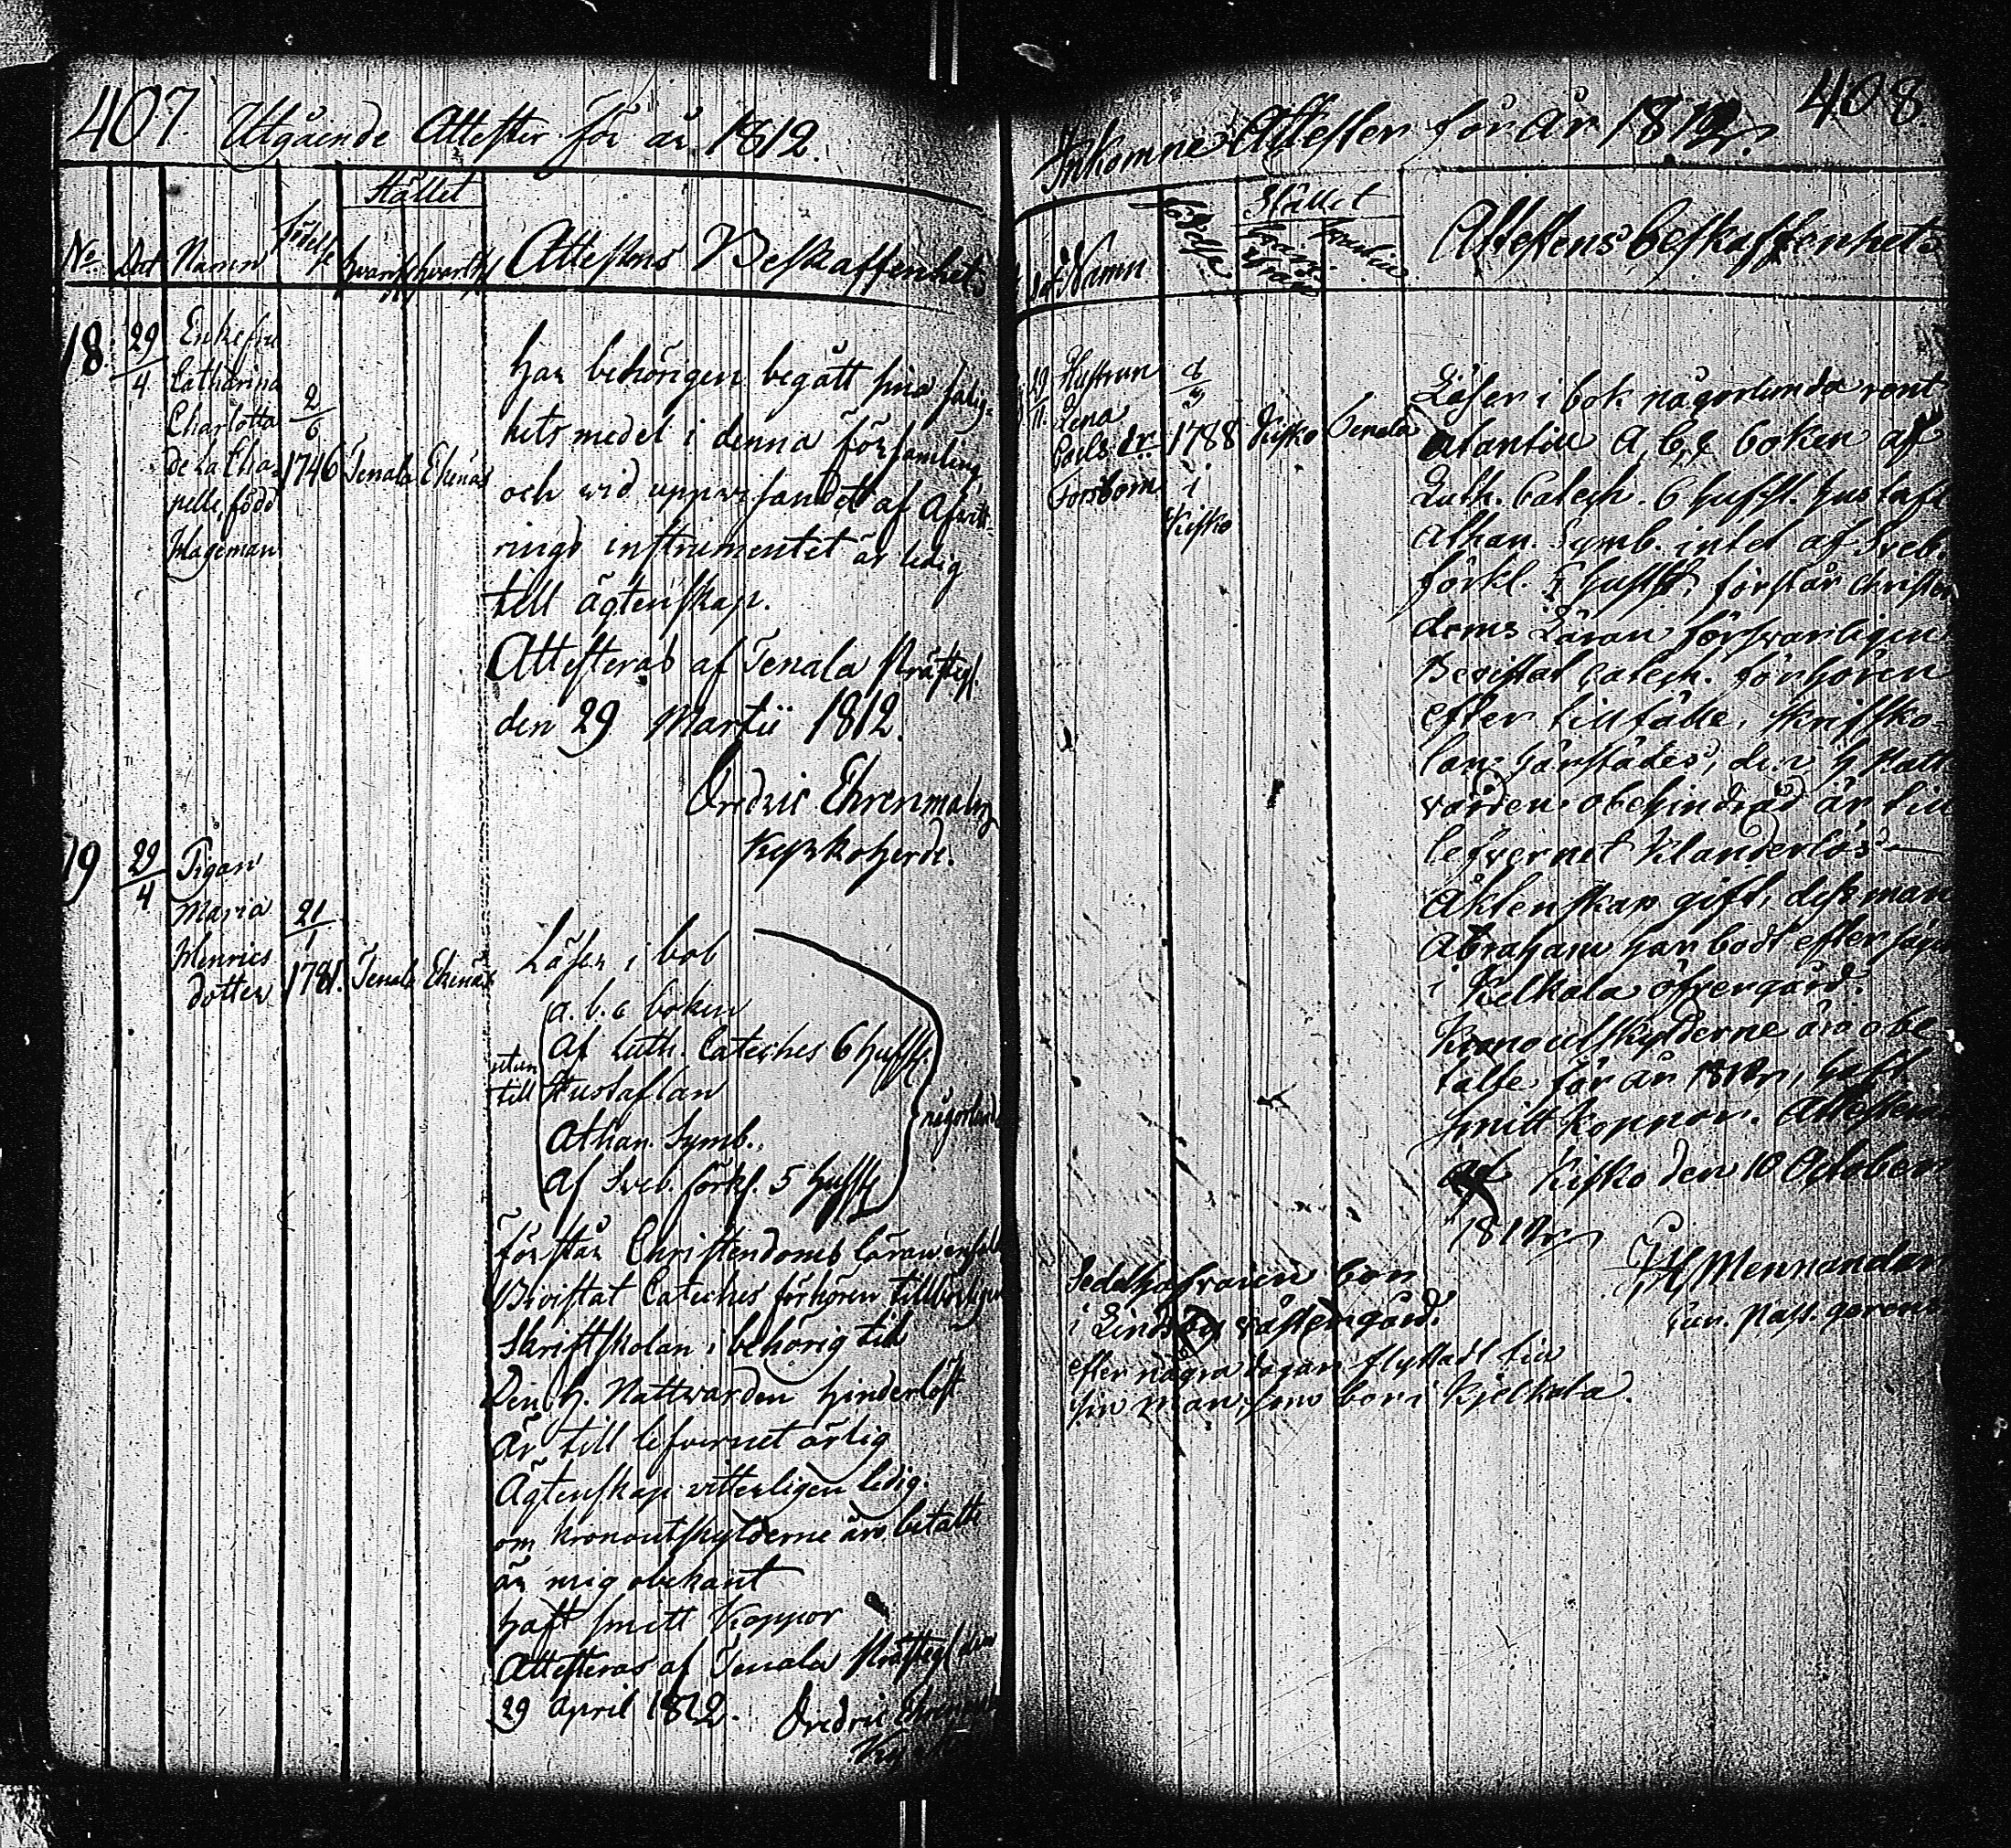 407. Utgående Attester för år 1812.
Stället
No Dat Namn födelse hvarifr. hvartill Attestens Beskaffenhet
18 29/4 Enkefru
Catharina
Charlotta 2/6
De la Cha-
pelle, född 1746 Tenala Ekenäs
Hageman
har behörigen begått sina salig-
hets medel i denna församling,
och vid uppvisandet af Afvitt-
rings instrumentet är ledig
till ägtenskap.
Attesteras af Tenala Prästeg.
den 29 Martii 1812.
Fredric Ehrenmalm
Kyrkoherde.
19 29/4 Pigan
Maria 21/1
Henrics
dotter 1781. Tenala Ekenäs
Läser i bok
a. b. c boken
af Luth. Cateches 6 hufst.
utan
till Hustaflan
Athan. Symb.
af Sveb. förkl. 5 hufst
någorlunda
förstår Christendoms läran
Bevistat Cateches förhören tillbörligen
Skriftskolan i behörig tid
Den h. Nattvarden hinderlöst
Är till lefvernet ärlig
Ägtenskap vitterligen ledig.
om Kronoutskylderne äro betalte
är mig obekant
haft smitt Koppor
Attesteras af Tenala Prästeg. den
29 April 1812. Fredric Ehrenmalm
408.
Inkomne Attester för År 1812.
Stället
Dat Namn födelse Attestens beskaffenhet
29/11. Hustrun
Lena
Carls dr. 1788 Kisko Tenala
Forsbom i
Kisko
Läser i bok någorlunda rent
utantill A, b, c boken af
Luth. Catech. 6 hufst. hustafl.
Athan. Symb. intet af Sveb.
förkl. 5 hufst. förstår Christen
doms Läran försvarligen
Bevistat Catech. förhören
efter tillfälle, skriftsko-
lan härstädes, den h Natt
varden obehindrad är till
lefvernet Klanderlös
Äktenskap gift, dess man
Abraham har bodt efter sägen
i Kelkala öfvergård.
Kronoutskylderne äro obe-
talte för år 1812, haft
smitt koppor. Attesteras
af Kisko den 10 October
1812
Mennander
vice. past.
i Lindsby västergård.
efter några dagar flyttadt till
sin man, som bor i Kjelkala.